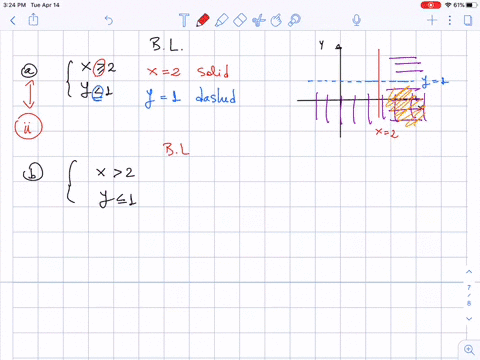 3:24 PM Tue Apr 14
61%
B.L.
a x ⩾ 2 x = 2 solid
y ≤ 1 y = 1 dashed
ii
Y
y = 1
x
x = 2
B.L
b x > 2
y ≤ 1
7
8